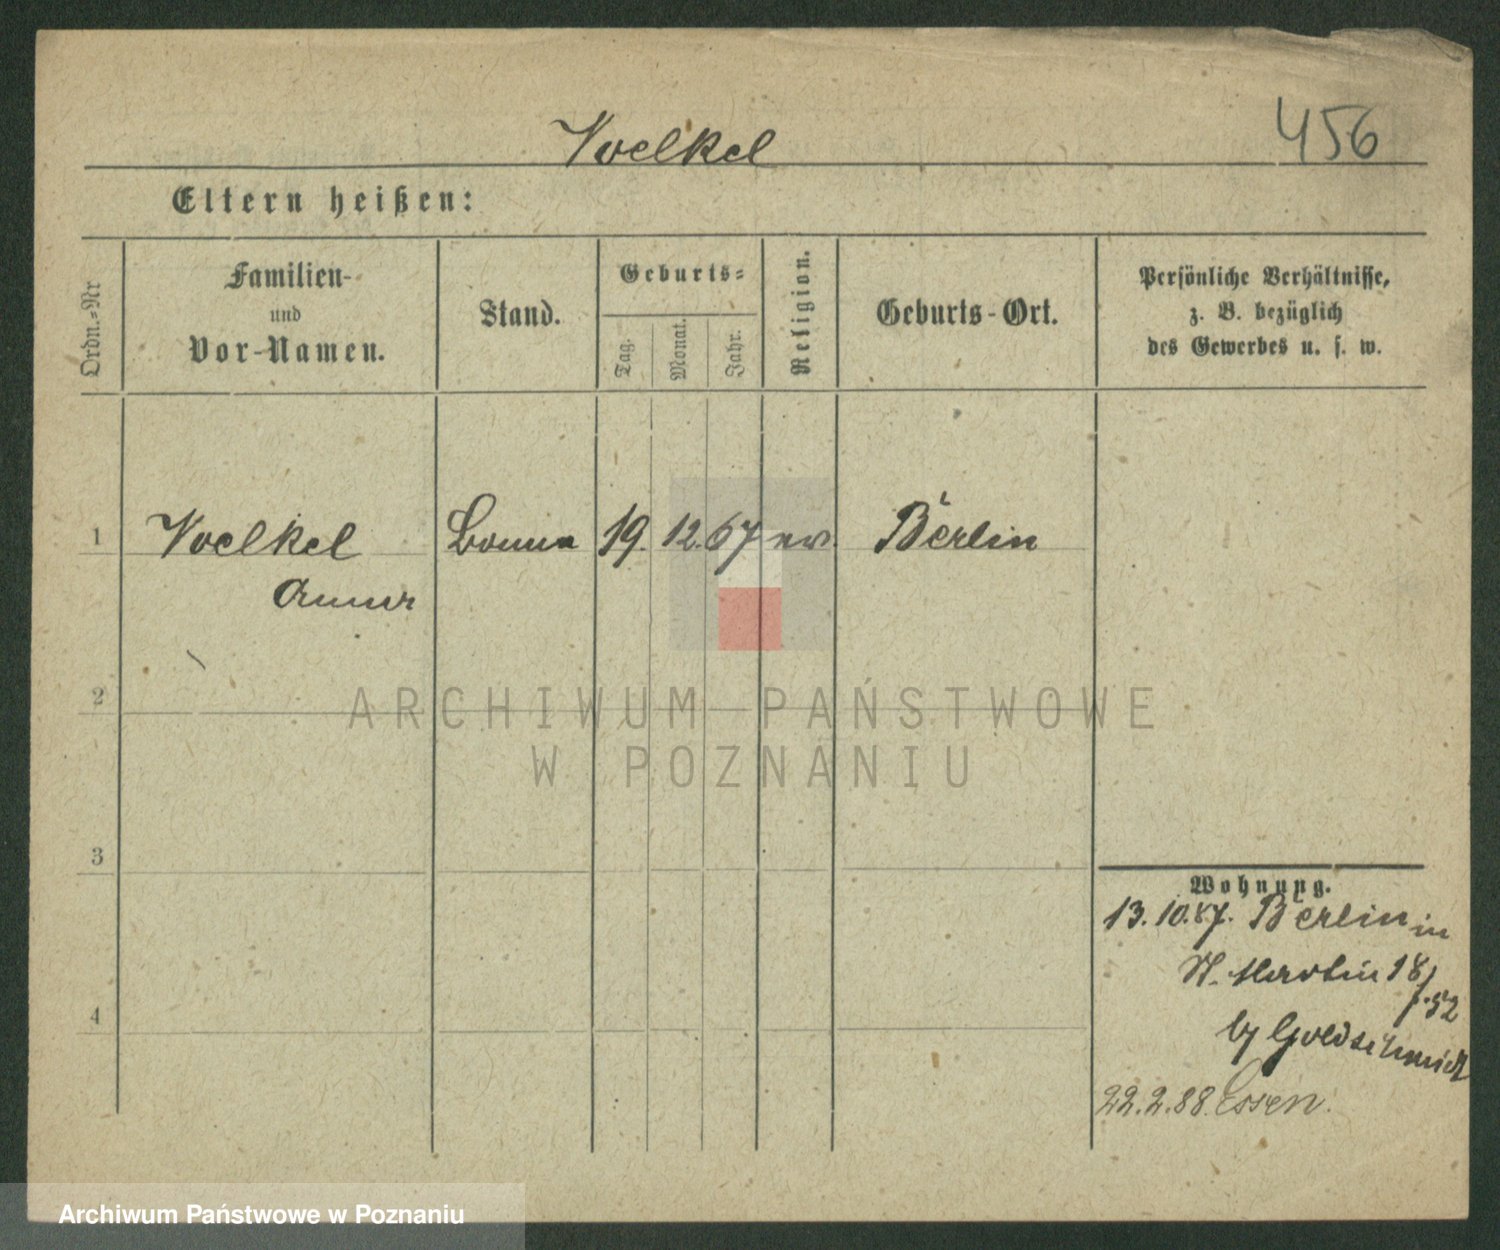 Voelkel
456
Eltern heißen:
Ordn.=Nr
Familien-
und
Vor-Namen.
Stand.
Geburts=
Tag.
Monat.
Jahr.
Religion.
Geburts-Ort.
Persönliche Verhältnisse,
z. B. bezüglich
des Gewerbes u. s. w.
1 Voelkel Bonna 19. 12. 67 ev. Berlin
Anna
2
ARCHIWUM PAŃSTWOWE
W POZNANIU
3
Wohnung.
13. 10. 87. Berlin in
St. Martin 18/
52
4
by Goldschmidt
22. 2. 88. Essen.
Archiwum Państwowe w Poznaniu